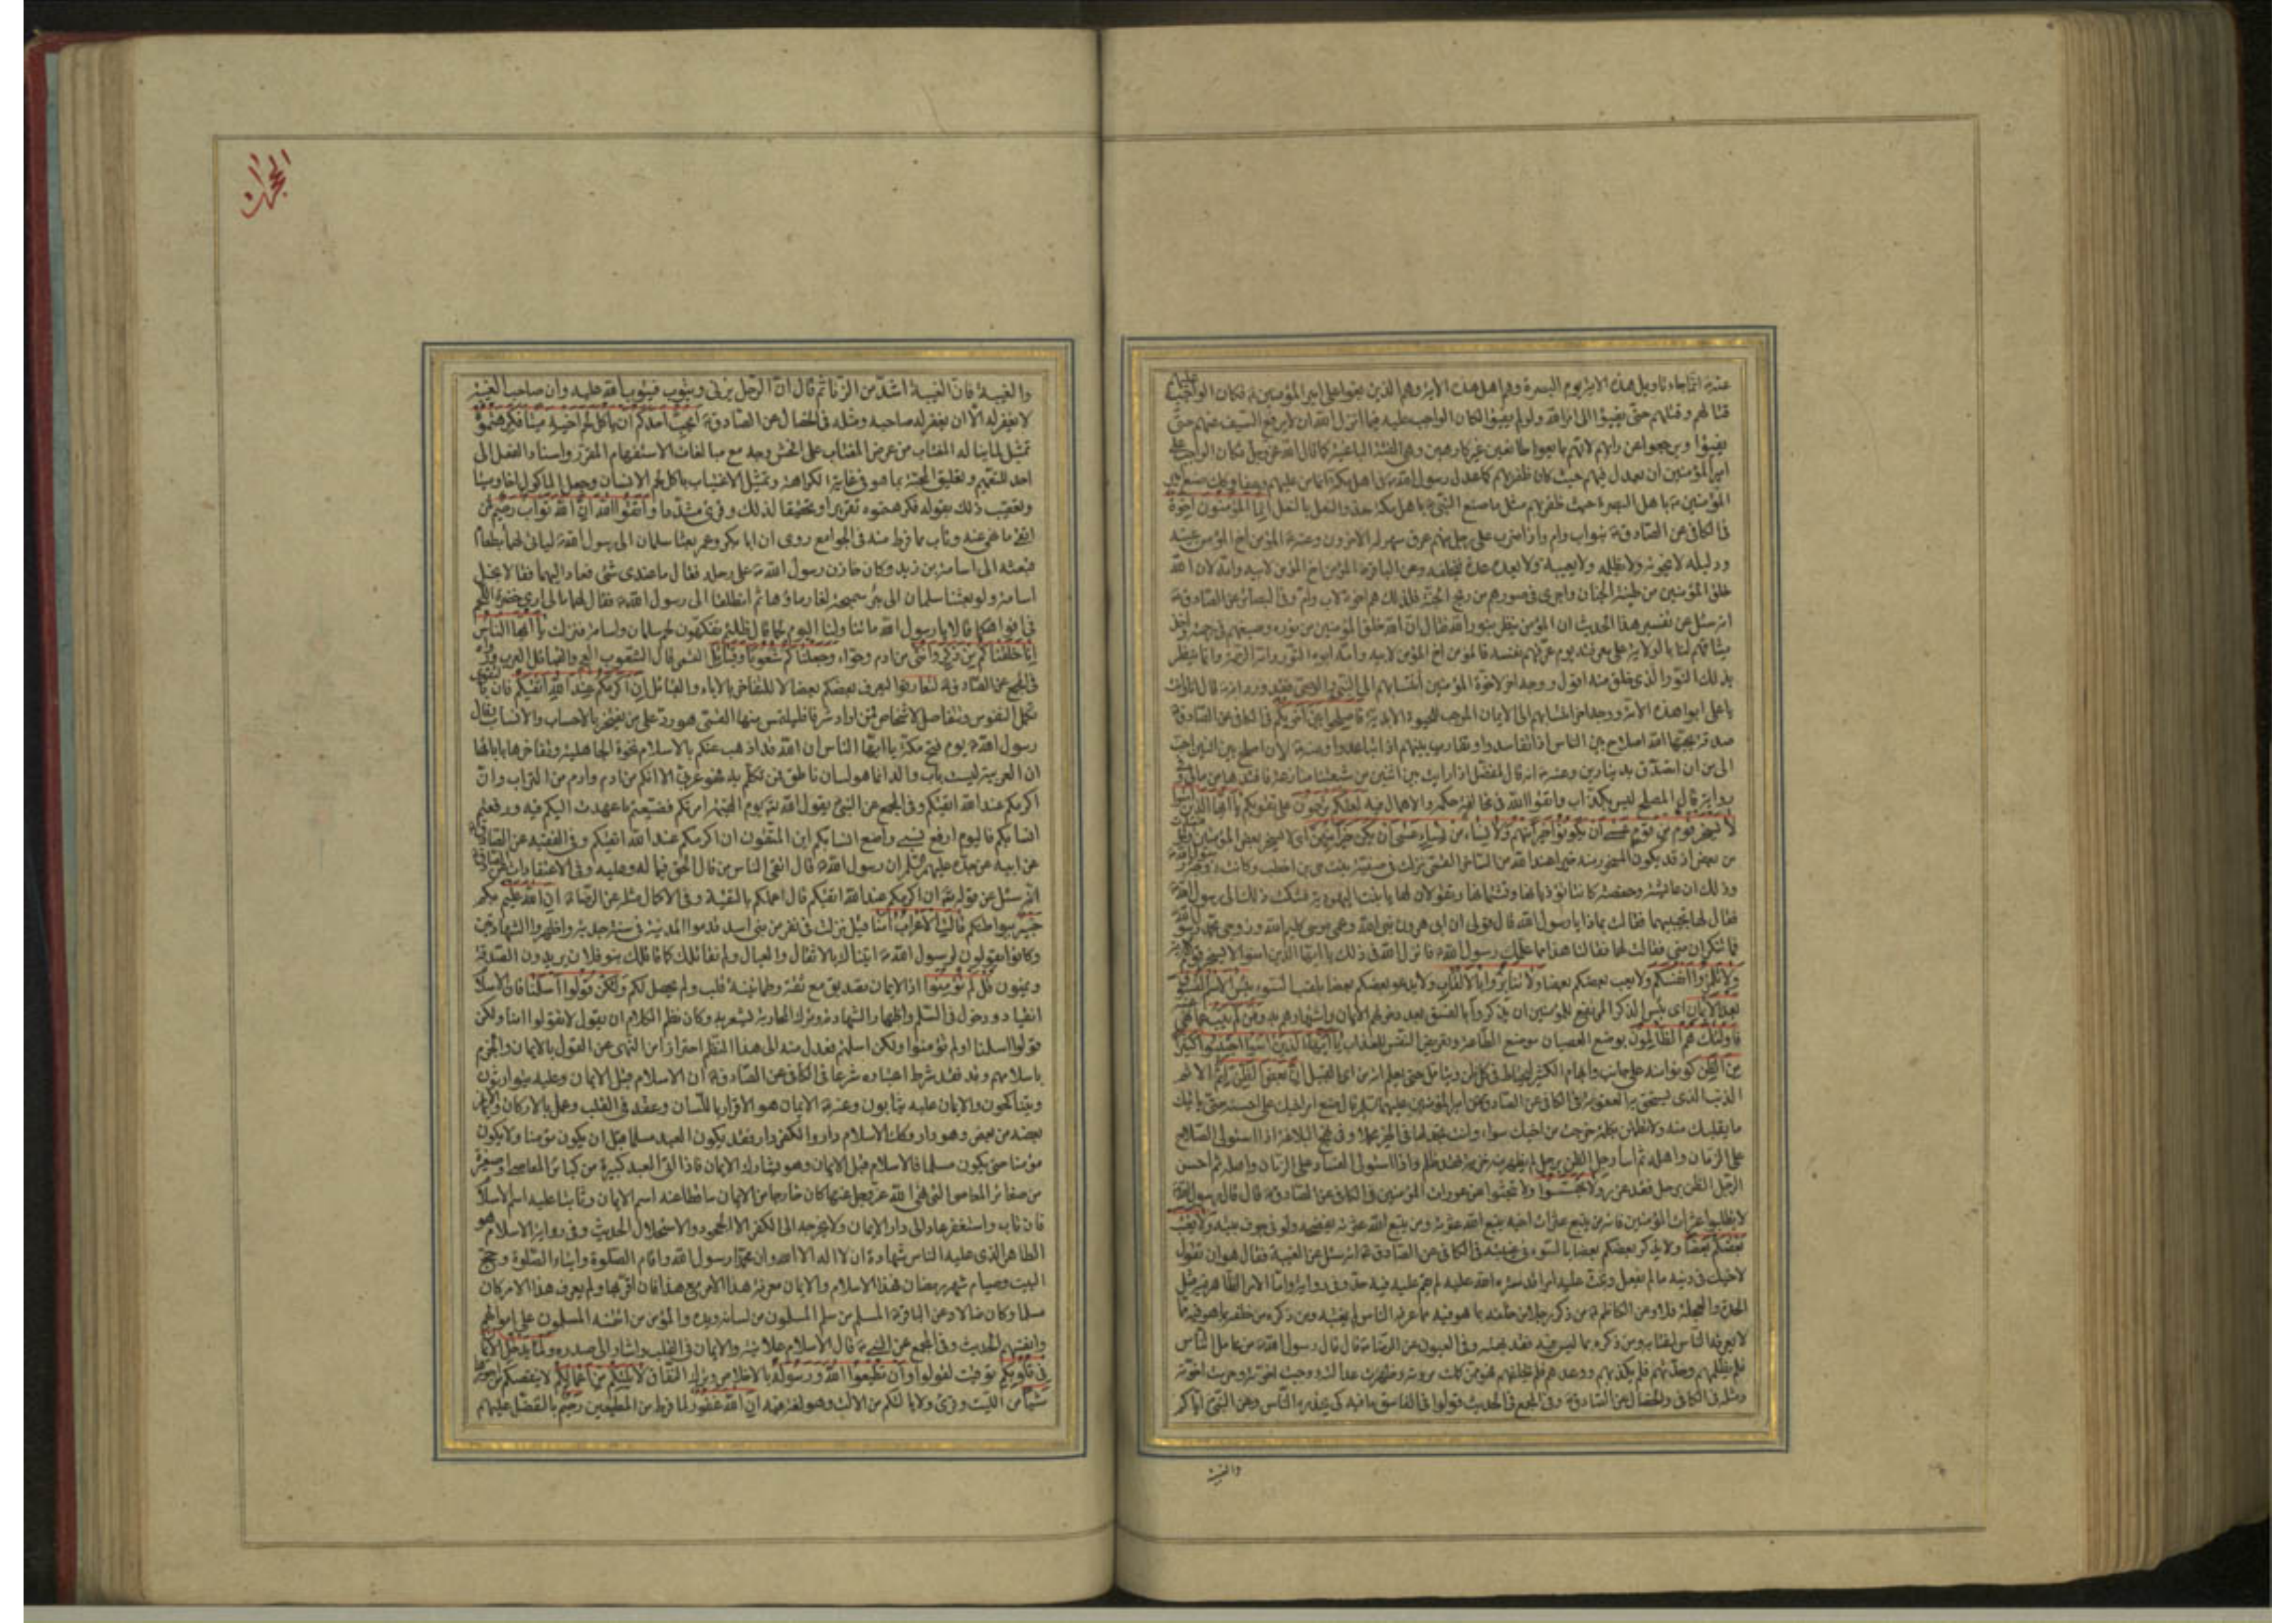 عنه ع انما جاء تاويل هذه الاية يوم البصرة وهم اهل هذه الاية وهم الذين بغوا على امير المؤمنين ع فكان الواجب عليه
قتالهم وقتلهم حتى يفيئوا الى امر الله ولو لم يفيئوا لكان الواجب عليه فيما انزل الله ان لا يرفع السيف عنهم حتى
يفيئوا ويرجعوا عن رايهم لانهم بايعوا طائعين غير كارهين وهي الفئة الباغية كما قال الله عز وجل فكان الواجب على
امير المؤمنين ان يعدل فيهم حيث كان ظفر بهم كما عدل رسول الله ص في اهل مكة انما من عليهم وعفا وكذلك صنع امير
المؤمنين ع باهل البصرة حيث ظفر بهم مثل ما صنع النبي ص باهل مكة حذو النعل بالنعل انما المؤمنون اخوة
في الكافي عن الصادق ع بنو اب وام واذا ضرب على رجل منهم عرق سهر له الاخرون وعنه ع المؤمن اخ المؤمن عينه
ودليله لا يخونه ولا يظلمه ولا يعيبه ولا يعده عدة فيخلفه وعن الباقر ع المؤمن اخ المؤمن لابيه وامه لان الله
خلق المؤمنين من طينة الجنان واجرى في صورهم من ريح الجنة فلذلك هم اخوة لاب وام وفي البصائر عن الصادق ع
انه سئل عن تفسير هذا الحديث ان المؤمن ينظر بنور الله فقال ان الله خلق المؤمنين من نوره وصبغهم في رحمته واخذ
ميثاقهم لنا بالولاية على معرفته يوم عرفهم نفسه فالمؤمن اخ المؤمن لابيه وامه ابوه النور وامه الرحمة وانما ينظر
بذلك النور الذي خلق منه اقول ووجه اخر لاخوة المؤمنين انتسابهم الى النبي والوصي فقد ورد انه ص قال انا وانت
يا علي ابوا هذه الامة ووجه اخر انتسابهم الى الايمان الموجب للحيوة الابدية فاصلحوا بين اخويكم في الكافي عن الصادق ع
صدقة يحبها الله اصلاح بين الناس اذا تفاسدوا وتقارب بينهم اذا تباعدوا وعنه ع لان اصلح بين اثنين احب
الي من ان اتصدق بدينارين وعنه ع انه قال لمفضل اذا رايت بين اثنين من شيعتنا منازعة فافتدها من مالي وفي
رواية قال المصلح ليس بكذاب واتقوا الله في مخالفة حكمه والاهمال فيه لعلكم ترحمون على تقويكم يا ايها الذين امنوا
لا يسخر قوم من قوم عسى ان يكونوا خيرا منهم ولا نساء من نساء عسى ان يكن خيرا منهن اي لا يسخر بعض المؤمنين والمؤمنات
من بعض اذ قد يكون المسخور منه خيرا عند الله من الساخر القمي نزلت في صفية بنت حي بن اخطب وكانت زوجة رسول الله ص
وذلك ان عايشة وحفصة كانتا تؤذيانها وتشتمانها وتقولان لها يا بنت اليهودية فشكت ذلك الى رسول الله ص
فقال لها الا تجيبيهما فقالت بماذا يا رسول الله قال قولي ان ابي هرون نبي الله وعمي موسى كليم الله وزوجي محمد رسول الله
فما تنكران مني فقالت لهما فقالتا هذا ما علمك رسول الله ص فانزل الله في ذلك يا ايها الذين امنوا لا يسخر قوم الاية
ولا تلمزوا انفسكم ولا يعب بعضكم بعضا ولا تنابزوا بالالقاب ولا يدعو بعضكم بعضا بلقب السوء بئس الاسم الفسوق
بعد الايمان اي بئس الذكر المرتفع للمؤمنين ان يذكروا بالفسق بعد دخولهم الايمان واشتهارهم به ومن لم يتب عما نهي عنه
فاولئك هم الظالمون بوضع العصيان موضع الطاعة وتعريض النفس للعذاب يا ايها الذين امنوا اجتنبوا كثيرا
من الظن كونوا منه على جانب وابهام الكثير ليحتاط في كل ظن ويتامل حتى يعلم انه من اي القبيل ان بعض الظن اثم الاثم
الذنب الذي يستحق به العقوبة في الكافي عن الصادق ع عن امير المؤمنين عليهما السلام قال ضع امر اخيك على احسنه حتى ياتيك
ما يقلبك منه ولا تظنن بكلمة خرجت من اخيك سوءا وانت تجد لها في الخير محملا وفي نهج البلاغة اذا استولى الصلاح
على الزمان واهله ثم اساء رجل الظن برجل لم يظهر منه خزية فقد ظلم واذا استولى الفساد على الزمان واهله ثم احسن
الرجل الظن برجل فقد غرر ولا تجسسوا ولا تبحثوا عن عورات المؤمنين في الكافي عن الصادق ع قال قال رسول الله ص
لا تطلبوا عثرات المؤمنين فانه من يتبع عثرات اخيه يتبع الله عثرته ومن يتبع الله عثرته يفضحه ولو في جوف بيته ولا يغتب
بعضكم بعضا ولا يذكر بعضكم بعضا بالسوء في غيبته في الكافي عن الصادق ع انه سئل عن الغيبة فقال هو ان تقول
لاخيك في دينه ما لم يفعل وتبث عليه امرا قد ستره الله عليه لم يقم عليه فيه حد وفي رواية واما الامر الظاهر فيه مثل
الحدة والعجلة فلا وعن الكاظم ع من ذكر رجلا من خلفه بما هو فيه مما عرفه الناس لم يغتبه ومن ذكره من خلفه بما هو فيه مما
لا يعرفه الناس اغتابه ومن ذكره بما ليس فيه فقد بهته وفي العيون عن الرضا ع قال قال رسول الله ص من عامل الناس
فلم يظلمهم وحدثهم فلم يكذبهم ووعدهم فلم يخلفهم فهو ممن كملت مروته وظهرت عدالته ووجبت اخوته وحرمت غيبته
ومثله في الكافي والخصال عن الصادق ع وفي المجمع في الحديث قولوا في الفاسق ما فيه كي يحذره الناس وعن النبي ص اياكم
والغيبة
الحجرات
والغيبة فان الغيبة اشد من الزنا ثم قال ان الرجل يزني ويتوب فيتوب الله عليه وان صاحب الغيبة
لا يغفر له الا ان يغفر له صاحبه ومثله في الخصال عن الصادق ع ايحب احدكم ان ياكل لحم اخيه ميتا فكرهتموه
تمثيل لما يناله المغتاب من عرض المغتاب على افحش وجه مع مبالغات الاستفهام المقرر واسناد الفعل الى
احد للتعميم وتعليق المحبة بما هو في غاية الكراهة وتمثيل الاغتياب باكل لحم الانسان وجعل الماكول اخا وميتا
وتعقيب ذلك بقوله فكرهتموه تقريرا وتحقيقا لذلك وقرئ مشددا واتقوا الله ان الله تواب رحيم لمن
اتقى ما نهي عنه وتاب مما فرط منه في الجوامع روي ان ابا بكر وعمر بعثا سلمان الى رسول الله ص لياتي لهما بطعام
فبعثه الى اسامة بن زيد وكان خازن رسول الله ص على رحله فقال ما عندي شئ فعاد اليهما فقالا بخل
اسامة ولو بعثنا سلمان الى بئر سميحة لغار ماؤها ثم انطلقا الى رسول الله ص فقال لهما ما لي ارى خضرة اللحم
في افواهكما قالا يا رسول الله ما تناولنا اليوم لحما قال ظللتم تفكهون لحم سلمان واسامة فنزلت يا ايها الناس
انا خلقناكم من ذكر وانثى من ادم وحواء وجعلناكم شعوبا وقبائل القمي قال الشعوب العجم والقبائل العرب ورواه
في المجمع عن الصادق ع لتعارفوا ليعرف بعضكم بعضا لا للتفاخر بالاباء والقبائل ان اكرمكم عند الله اتقيكم فان بالتقوى
تكمل النفوس وتتفاضل الاشخاص فمن اراد شرفا فليلتمس منها القمي هو رد على من يفتخر بالاحساب والانساب وقال
رسول الله ص يوم فتح مكة يا ايها الناس ان الله قد اذهب عنكم بالاسلام نخوة الجاهلية وتفاخرها بابائها
ان العربية ليست باب والد انما هو لسان ناطق فمن تكلم به فهو عربي الا انكم من ادم وادم من التراب وان
اكرمكم عند الله اتقيكم وفي المجمع عن النبي ص يقول الله تع يوم القيمة امرتكم فضيعتم ما عهدت اليكم فيه ورفعتم
انسابكم فاليوم ارفع نسبي واضع انسابكم اين المتقون ان اكرمكم عند الله اتقيكم وفي الفقيه عن الصادق
عن ابيه عن جده عليهم السلام ان رسول الله ص قال اتقى الناس من قال الحق فيما له وعليه وفي الاعتقادات عن الصادق ع
انه سئل عن قوله تع ان اكرمكم عند الله اتقيكم قال اعملكم بالتقية وفي الاكمال مثله عن الرضا ع ان الله عليم بكم
خبير ببواطنكم قالت الاعراب امنا قيل نزلت في نفر من بني اسد قدموا المدينة في سنة جدبة واظهروا الشهادتين
وكانوا يقولون لرسول الله ص اتيناك بالاثقال والعيال ولم نقاتلك كما قاتلك بنو فلان يريدون الصدقة
ويمنون قل لم تؤمنوا اذ الايمان تصديق مع ثقة وطمانينة قلب ولم يحصل لكم ولكن قولوا اسلمنا فان الاسلام
انقياد ودخول في السلم واظهار الشهادة وترك المحاربة يشعر به وكان نظم الكلام ان يقول لا تقولوا امنا ولكن
قولوا اسلمنا اولم تؤمنوا ولكن اسلمتم فعدل منه الى هذا النظم احترازا من النهي عن القول بالايمان والجزم
باسلامهم وقد فقد شرط اعتباره شرعا في الكافي عن الصادق ع ان الاسلام قبل الايمان وعليه يتوارثون
ويتناكحون والايمان عليه يثابون وعنه ع الايمان هو الاقرار باللسان وعقد في القلب وعمل بالاركان والايمان
بعضه من بعض وهو دار وكذلك الاسلام دار والكفر دار فقد يكون العبد مسلما قبل ان يكون مؤمنا ولا يكون
مؤمنا حتى يكون مسلما فالاسلام قبل الايمان وهو يشارك الايمان فاذا اتى العبد كبيرة من كبائر المعاصي او صغيرة
من صغائر المعاصي التي نهى الله عز وجل عنها كان خارجا من الايمان ساقطا عنه اسم الايمان وثابتا عليه اسم الاسلام
فان تاب واستغفر عاد الى دار الايمان ولا يخرجه الى الكفر الا الجحود والاستحلال الحديث وفي رواية الاسلام هو
الظاهر الذي عليه الناس شهادة ان لا اله الا الله وان محمدا رسول الله واقام الصلوة وايتاء الصلوة وحج
البيت وصيام شهر رمضان فهذا الاسلام والايمان معرفة هذا الامر مع هذا فان اقر بها ولم يعرف هذا الامر كان
مسلما وكان ضالا وعن الباقر ع المسلم من سلم المسلمون من لسانه ويده والمؤمن من ائتمنه المسلمون على اموالهم
وانفسهم الحديث وفي المجمع عن النبي ص قال الاسلام علانية والايمان في القلب واشار الى صدره ولما يدخل الايمان
في قلوبكم توقيت لقولوا وان تطيعوا الله ورسوله بالاخلاص وترك النفاق لا يلتكم من اعمالكم لا ينقصكم من اجورها
شيئا من الليت وقرئ ولا يالتكم من الالت وهو لغة فيه ان الله غفور لما فرط من المطيعين رحيم بالتفضل عليهم